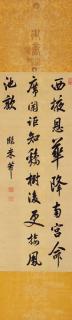 西掖恩華降南宮命
席闻詎知鷄樹後更接鳳
池歡
臨米芾